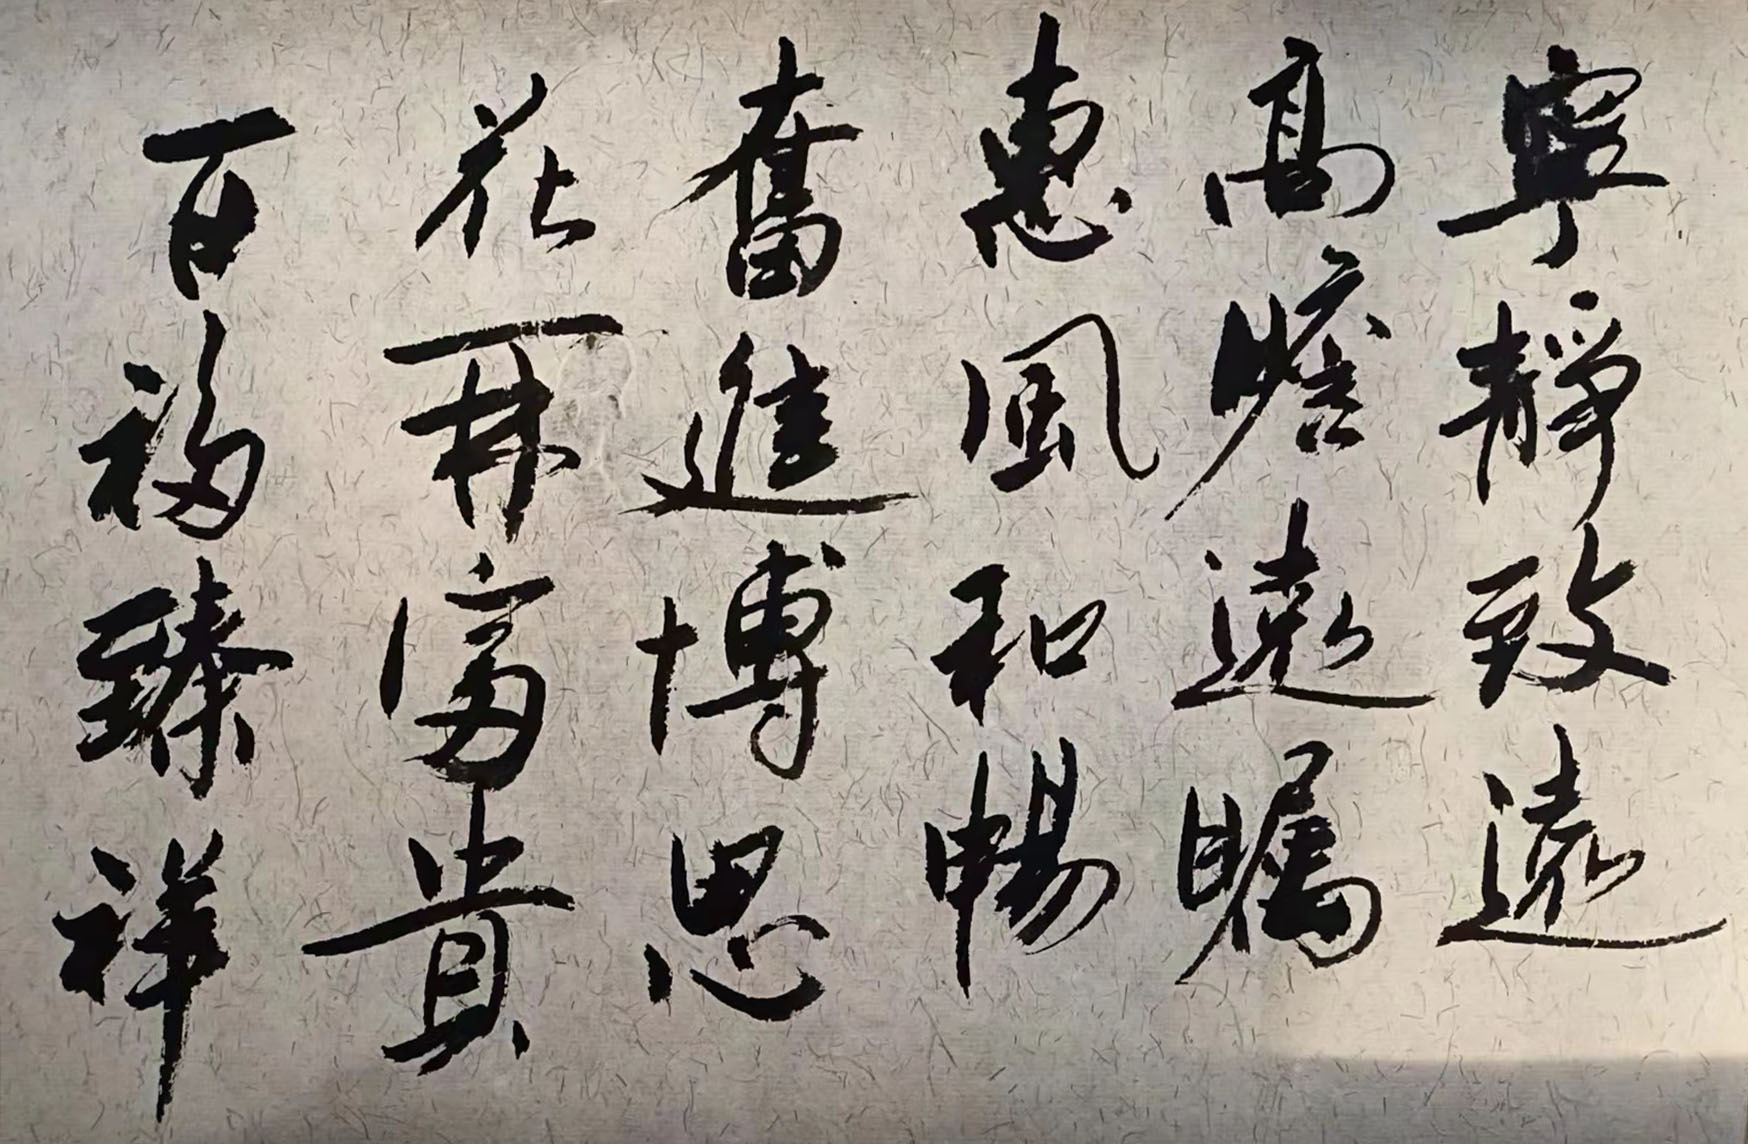 寧靜致遠
高瞻遠矚
惠風和暢
奮進博思
花開富貴
百福臻祥